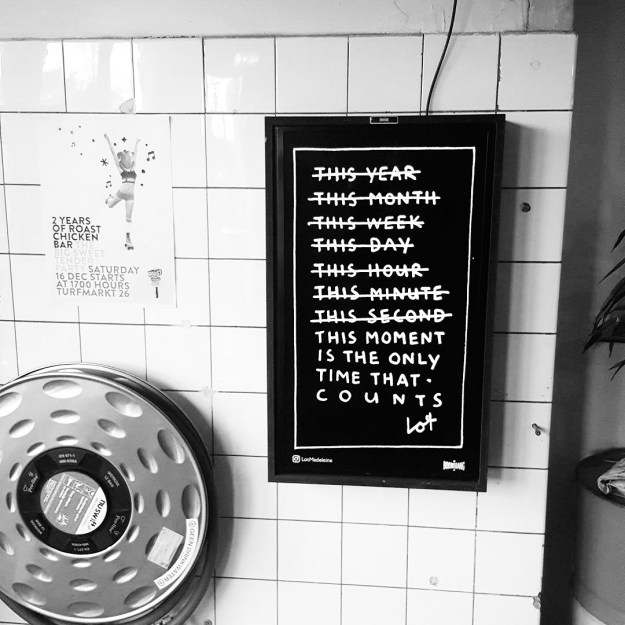 2 YEARS
OF ROAST
CHICKEN
BAR THE
BIG SWEET
TENDER
PARTY SATURDAY
16 DEC STARTS
AT 1700 HOURS
TURFMARKT 26
THIS YEAR
THIS MONTH
THIS WEEK
THIS DAY
THIS HOUR
THIS MINUTE
THIS SECOND
THIS MOMENT
IS THE ONLY
TIME THAT
COUNTS
Lot
LotMadeleine
BOOMERANG
GEEN DRINKWATER